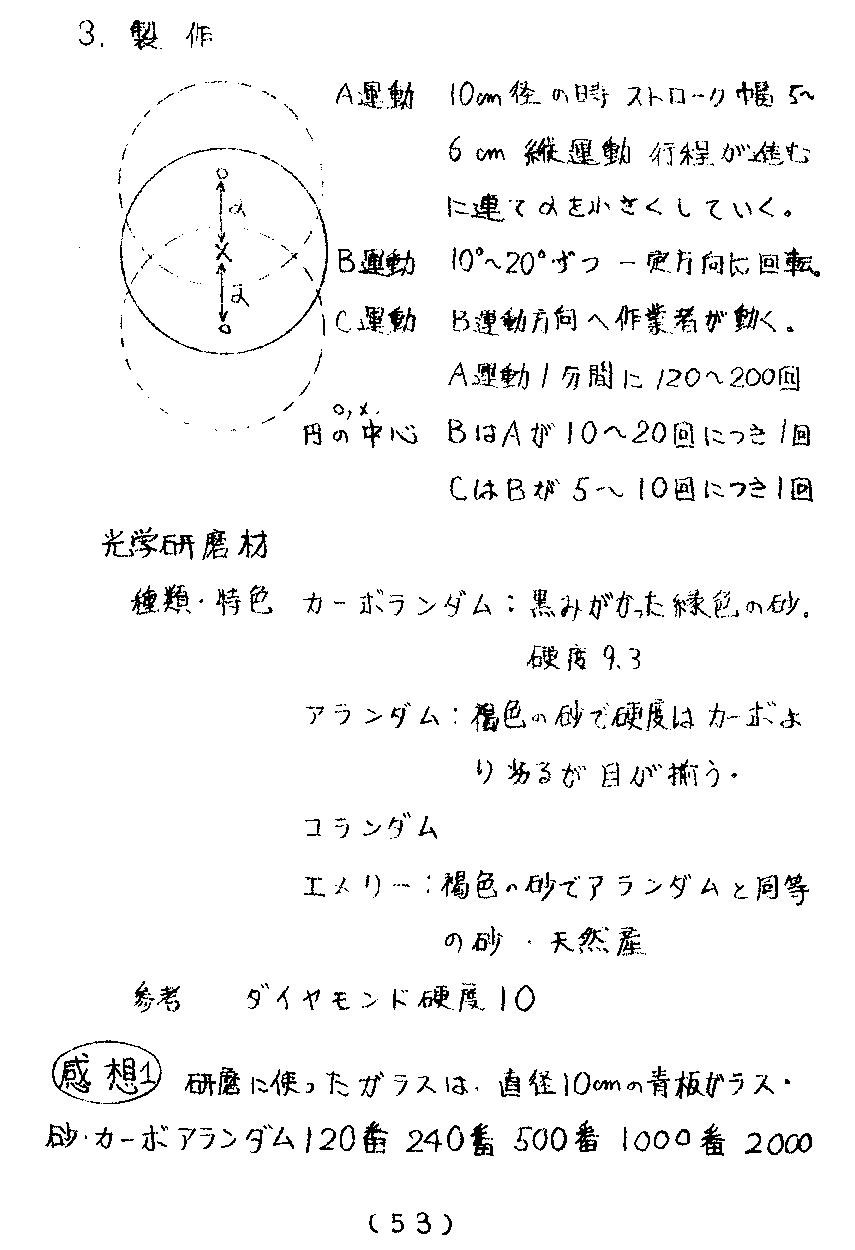 3. 製作
A運動 10cm径の時 ストローク幅 5〜
6cm 縦運動 行程が進む
に連てαを小さくしていく。
α
α
B運動 10°〜20°ずつ 一定方向に回転。
C運動 B運動方向へ作業者が動く。
A運動 1分間に 120〜200回
o, x.
円の中心 BはAが10〜20回につき1回
CはBが5〜10回につき1回
光学研磨材
種類・特色 カーボランダム:黒みがかった緑色の砂.
硬度9.3
アランダム:褐色の砂で硬度はカーボよ
り劣るが目が揃う.
コランダム
エメリー:褐色の砂でアランダムと同等
の砂 . 天然産
参考 ダイヤモンド硬度10
感想1 研磨に使ったガラスは. 直径10cmの青板ガラス・
砂・カーボアランダム120番 240番 500番 1000番 2000
(53)